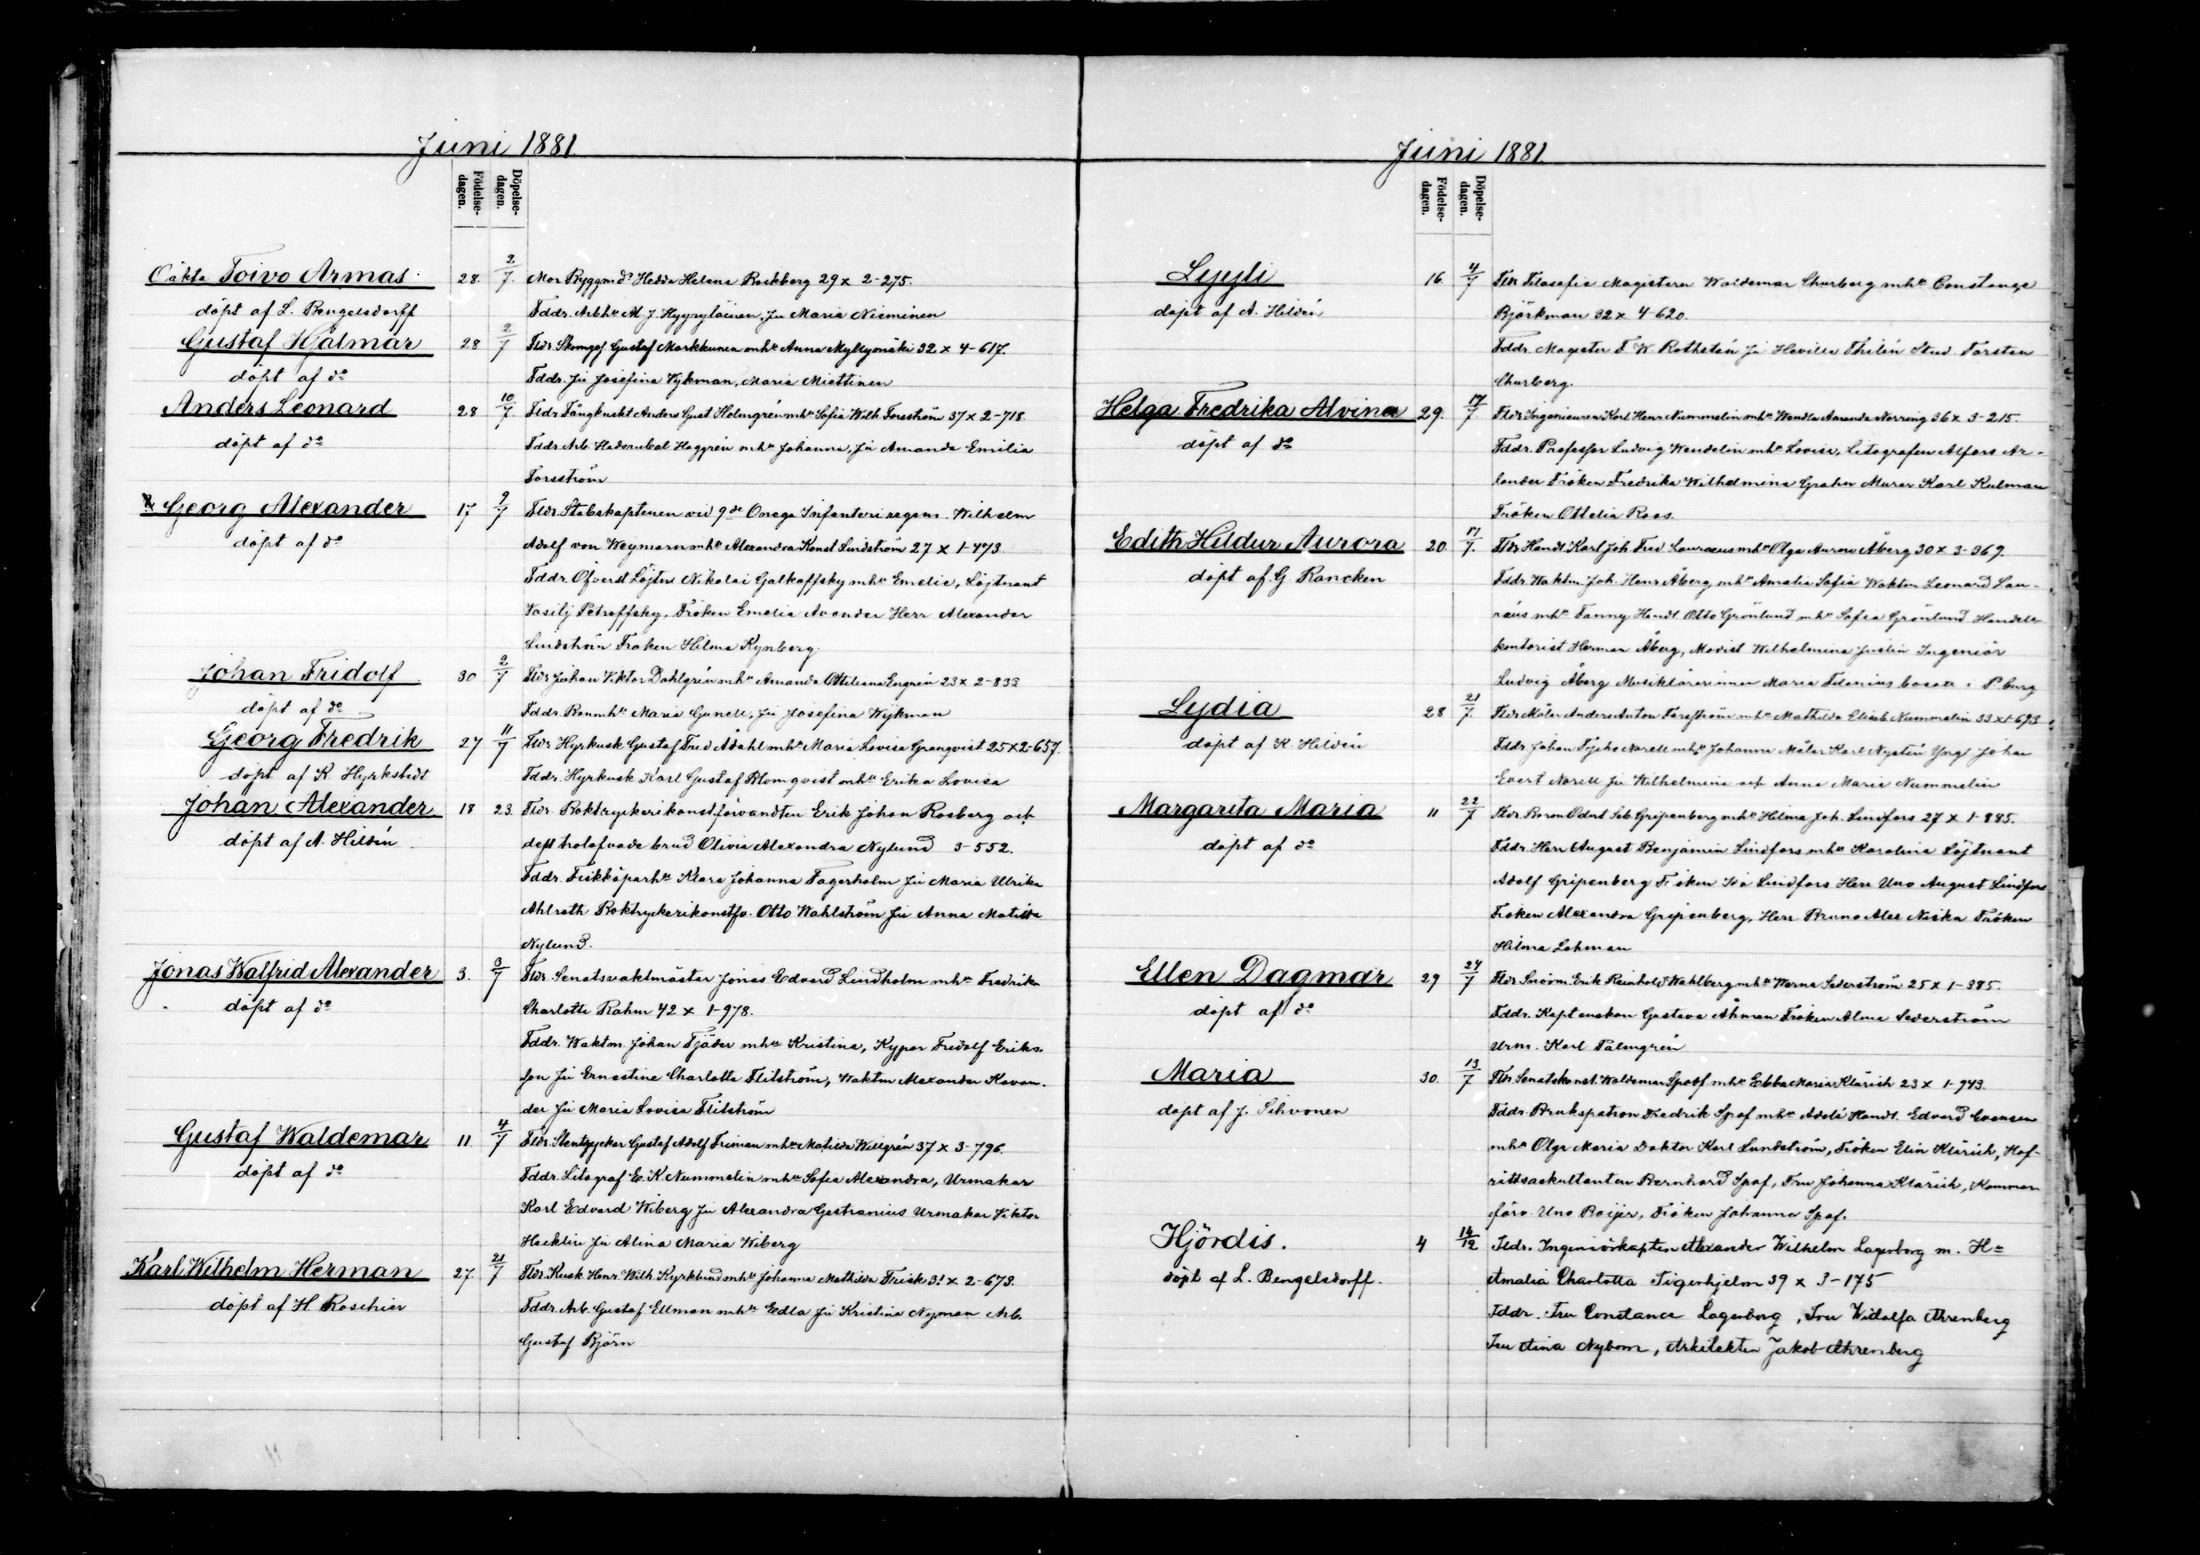 Juni 1881
Födelse-dagen.
Döpelse-dagen.
Oäkta Toivo Armas 28. 2/7. Mor Byggmds Hedda Helena Rockberg 29 x 2-275.
döpt af L. Bengelsdorff Fddr. Arbh M. J. Hyyryläinen, Ju Maria Nieminen
Gustaf Hjalmar 28 2/7 Fldr. Gustaf Markkunen mhu Anna Myllyomäki 32 x 4-617.
döpt af do Fddr. Ju Josefina Wykman, Maria Miettinen
Anders Leonard 28 10/7 Fldr. Fångknekt Anders Gust Holmgrén mhu Sofia Wilh. Forsström 37 x 2-718.
döpt af do Fddr. Arb. Haggrén mhu Johanna, Ju Amanda Emilia
Forsström
Georg Alexander 17 9/7 Fldr. Stabskaptenen vid 9de Onega Infanteri regem. Wilhelm
döpt af do Adolf von Weymarn mhu Alexandra Konst Lindström 27 x 1-473
Fddr. Öfverst Löjtn Nikolai Galkoffsky mhu Emelie, Löjtnant
Vasilj Petroffsky, Fröken Emelia Avander Herr Alexander
Lindström Fröken Hilma Kynberg.
Johan Fridolf 30 2/7 Fldr Johan Viktor Dahlgrén mhu Amanda Ottiliana Engrén 23 x 2-833
döpt af do Fddr. Maria Gunell, Ju Josefina Wijkman
Georg Fredrik 27 11/7 Fldr. Hyrkusk Gustaf Fred Ådahl mhu Maria Lovisa Granqvist 25 x 2-657.
döpt af K Hyrkstedt Fddr. Hyrkusk Karl Gustaf Blomqvist mhu Erika Lovisa
Johan Alexander 18 23. Fldr. Boktryckerikonstförvandten Erik Johan Rosberg och
döpt af A. Hildén dess trolofvade brud Olivia Alexandra Nylund 3-552.
Fddr. Fiskköparh Klara Johanna Fagerholm Ju Maria Ulrika
Ahlroth Boktryckerikonstfv. Otto Wahlström Ju Anna Matilda
Nylund.
Jonas Walfrid Alexander 3. 3/7 Fldr. Senatsvaktmäster Jonas Edvard Lindholm mhu Fredrika
döpt af do Charlotta Rahm 42 x 1-978.
Fddr. Waktm. Johan Tjäder mhu Kristina, Kypar Fridolf Eriks-
son Ju Ernestine Charlotta Flitström, Waktm Alexander Kavan-
der Ju Maria Lovisa Flitström
Gustaf Waldemar 11. 4/7 Fldr. Stentryckar Gustaf Adolf Friman mhu Matilda Willgrén 37 x 3-796.
döpt af do Fddr. Litograf E. K. Nummelin mhu Sofia Alexandra, Urmakar
Karl Edvard Wiberg Ju Alexandra Gestranius Urmakar Viktor
Hacklin Ju Alina Maria Wiberg
Karl Wilhelm Herman 27. 21/7 Fldr. Kusk Henr. Wilh. Kyrklund mhu Johanna Mathilda Frisk 31 x 2-673.
döpt af H. Roschier Fddr. Arb. Gustaf Ellman mhu Edla Ju Kristina Nyman Arb.
Gustaf Björn
Juni 1881
Födelse-dagen.
Döpelse-dagen.
Lyyli 16. 4/7 Fldr Filosofie Magistern Waldemar Churberg mhu Constange
döpt af A. Hildén Björkman 32 x 4-620.
Fddr. Magister F. W. Rothstén Ju Hevilla Thilén Stud. Torsten
Churberg.
Helga Fredrika Alvina 29. 17/7. Fldr Ingeniören Karl Henr Nummelin mhu Wendla Amanda Norring 36 x 3-215.
döpt af do Fddr. Professor Ludvig Wendelin mhu Lovisa, Litografen Alfons Ar-
lander Fröken Fredrika Wilhelmina Grahn Murar Karl Kulman
Fröken Ottelia Roos.
Edith Hildur Aurora 20 17/7. Fldr Handl. Karl Joh. Fred Lauraeus mhu Olga Aurora Åberg 30 x 3-369.
döpt af G. Rancken Fddr. Waktm. Joh. Henr Åberg mhu Amalia Sofia Waktm Leonard Lau-
raeus mhu Fanny Handl. Otto Grönlund mhu Sofia Grönlund Handels-
kontorist Herman Åberg, Modist Wilhelmina Juslin Ingeniör
Ludvig Åberg Musiklärarinnan Maria Filenius bosatt i P.burg
Lydia 28 21/7. Fldr Målar Anders Anton Forsström mhu Mathilda Elisab Nummelin 33 x 1-693.
döpt af K. Hildén Fddr. Johan Tycho Norell mhu Johanna Målar Karl Nystén Yngl Johan
Evert Norell Ju Wilhelmina och Anna Maria Nummelin
Margarita Maria 11 22/7 Fldr. Baron Odert Seb Gripenberg mhu Hilma Joh. Lindfors 27 x 1-885.
döpt af do Fddr. Herr August Benjamin Lindfors mhu Karolina Löjtnant
Adolf Gripenberg Fröken Ida Lindfors Herr Uno August Lindfors
Fröken Alexandra Gripenberg, Herr Bruno Alex Niska Fröken
Hilma Lohman
Ellen Dagmar 29 24/7 Fldr. Snöörm. Erik Reinhold Wahlberg mhu Werna Sederström 25 x 1-385.
döpt af do Fddr. Kaptenskan Gustava Åhman Fröken Alma Sederström
Urm. Karl Palmgrén
Maria 30. 13/7 Fldr. Senatskonst. Waldemar Spoof mhu Ebba Maria Klärich 23 x 1-943.
döpt af J. Sihvonen Fddr. Brukspatron Fredrik Spof mhu Adele Handl. Edvard Evensen
mhu Olga Maria Doktor Karl Lundström, Fröken Elin Klärich, Hof-
rättsauskultanten Bernhard Spof, Fru Johanna Klärich, Kammar-
förv. Uno Boijer, Fröken Johanna Spof.
Hjördis. 4 14/12 Fldr. Ingeniörkapten Alexander Wilhelm Lagerborg m. Hu
döpt af L. Bengelsdorff. Amalia Charlotta Tigerhjelm 39 x 3-175
Fddr. Fru Constance Lagerborg, Fru Widolfa Ahrenberg
Fru Aina Nybom, Arkitekten Jakob Ahrenberg